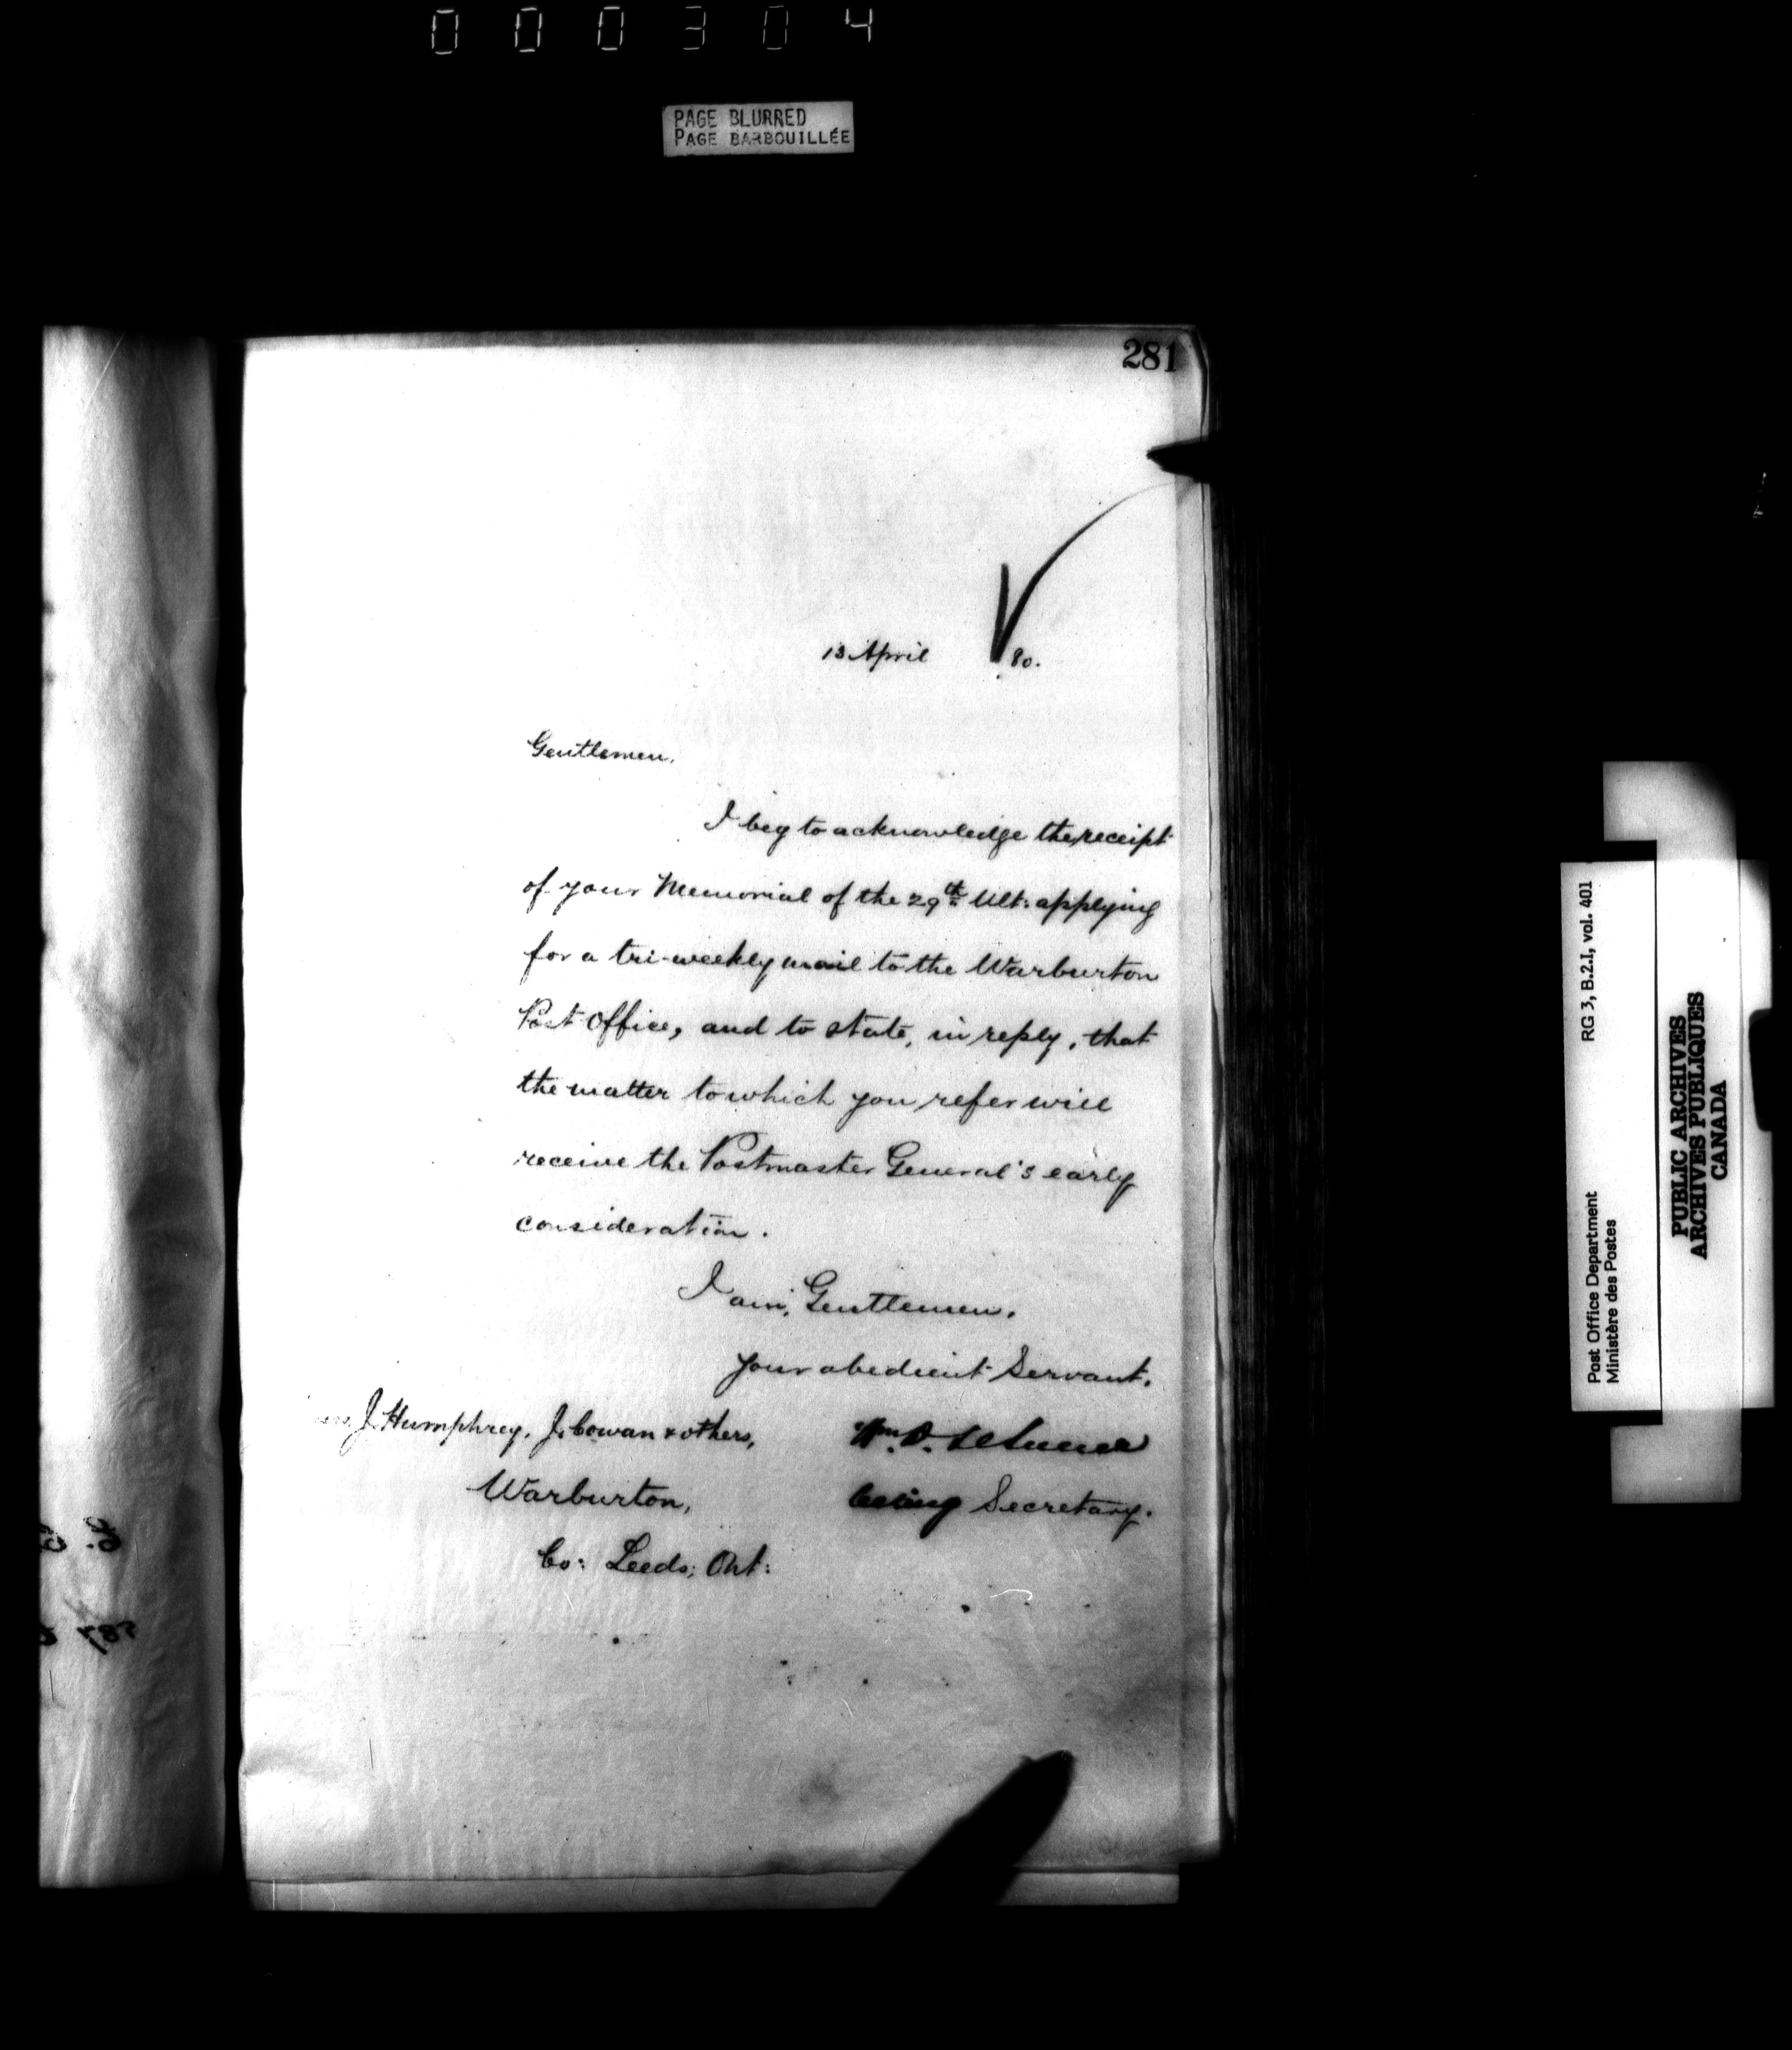 000304
PAGE BLURRED
PAGE BARBOUILLÉE
281
13 April 80.
Gentlemen,
I beg to acknowledge the receipt
of your Memorial of the 29th Ult: applying
for a tri-weekly mail to the Warburton
Post Office, and to state, in reply, that
the matter to which you refer will
receive the Postmaster General's early
consideration.
I am, Gentlemen,
Your obedient Servant,
J. Humphrey, J. Cowan & others,
Wm. D.
Warburton,
Secretary.
Co: Leeds, Ont:
RG 3, B.2.I, vol. 401
Post Office Department
Ministère des Postes
PUBLIC ARCHIVES
ARCHIVES PUBLIQUES
CANADA